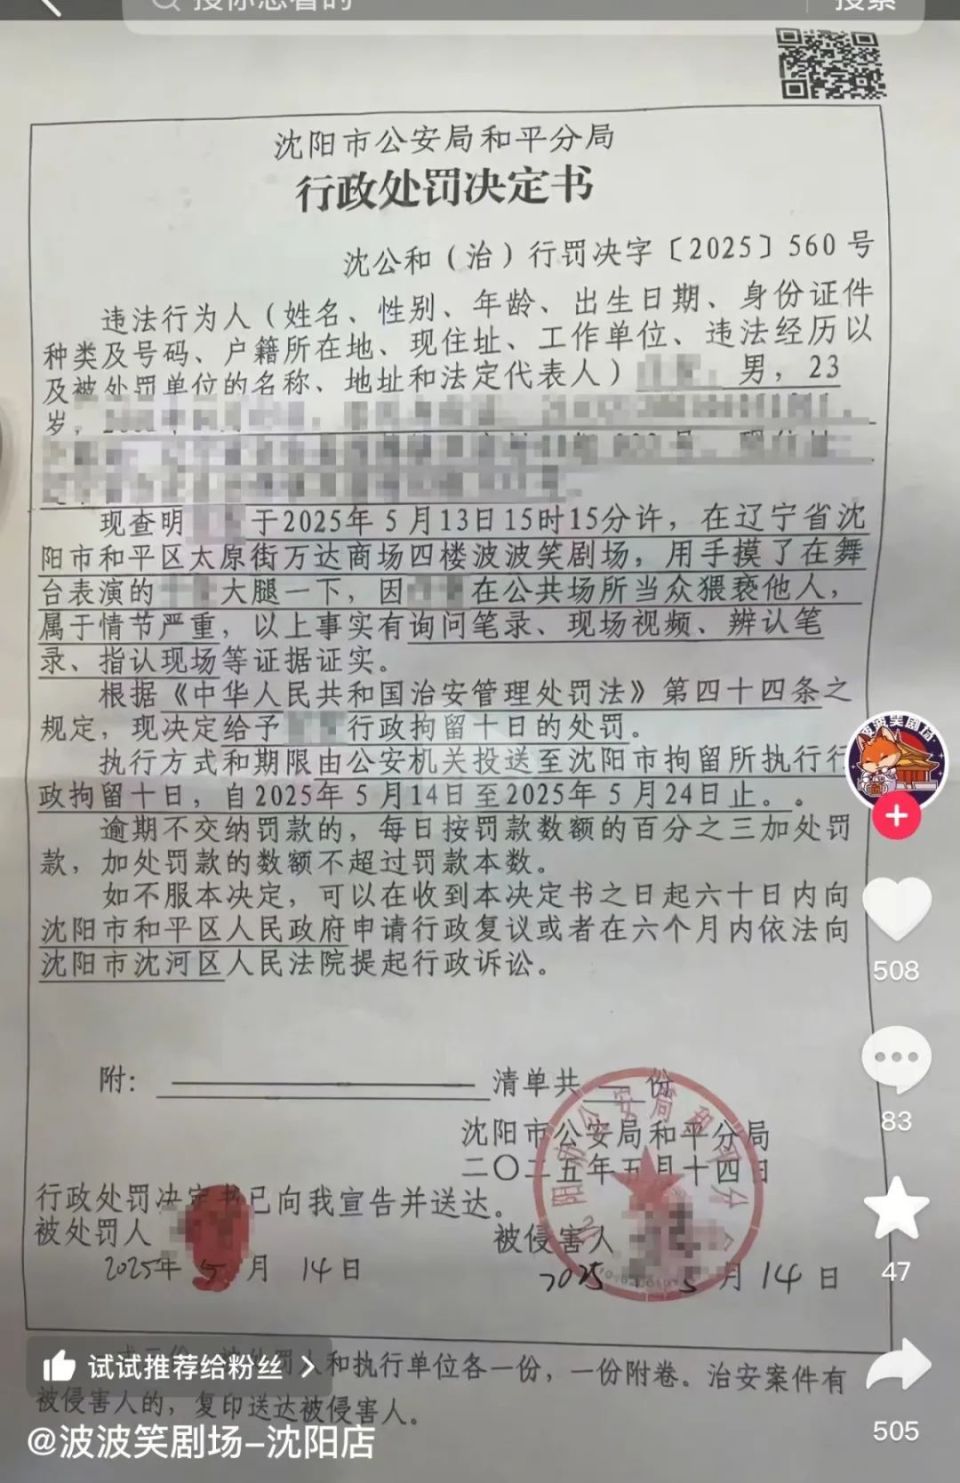 搜索
沈阳市公安局和平分局
行政处罚决定书
沈公和（治）行罚决字〔2025〕560号
违法行为人（姓名、性别、年龄、出生日期、身份证件
种类及号码、户籍所在地、现住址、工作单位、违法经历以
及被处罚单位的名称、地址和法定代表人） 男，23
岁，
现查明 于2025年5月13日15时15分许，在辽宁省沈
阳市和平区太原街万达商场四楼波波笑剧场，用手摸了在舞
台表演的 大腿一下，因 在公共场所当众猥亵他人，
属于情节严重，以上事实有询问笔录、现场视频、辨认笔
录、指认现场等证据证实。
根据《中华人民共和国治安管理处罚法》第四十四条之
规定，现决定给予 行政拘留十日的处罚。
执行方式和期限由公安机关投送至沈阳市拘留所执行行
政拘留十日，自2025年5月14日至2025年5月24日止。。
逾期不交纳罚款的，每日按罚款数额的百分之三加处罚
款，加处罚款的数额不超过罚款本数。
如不服本决定，可以在收到本决定书之日起六十日内向
沈阳市和平区人民政府申请行政复议或者在六个月内依法向
沈阳市沈河区人民法院提起行政诉讼。
附： 清单共 份
沈阳市公安局和平分局
二〇二五年五月十四日
行政处罚决定书已向我宣告并送达。
被处罚人
被侵害人
2025年5月14日
2025 5月14日
和执行单位各一份，一份附卷。治安案件有
被侵害人的，复印送达被侵害人。
试试推荐给粉丝
@波波笑剧场-沈阳店
波波笑剧场
508
83
47
505